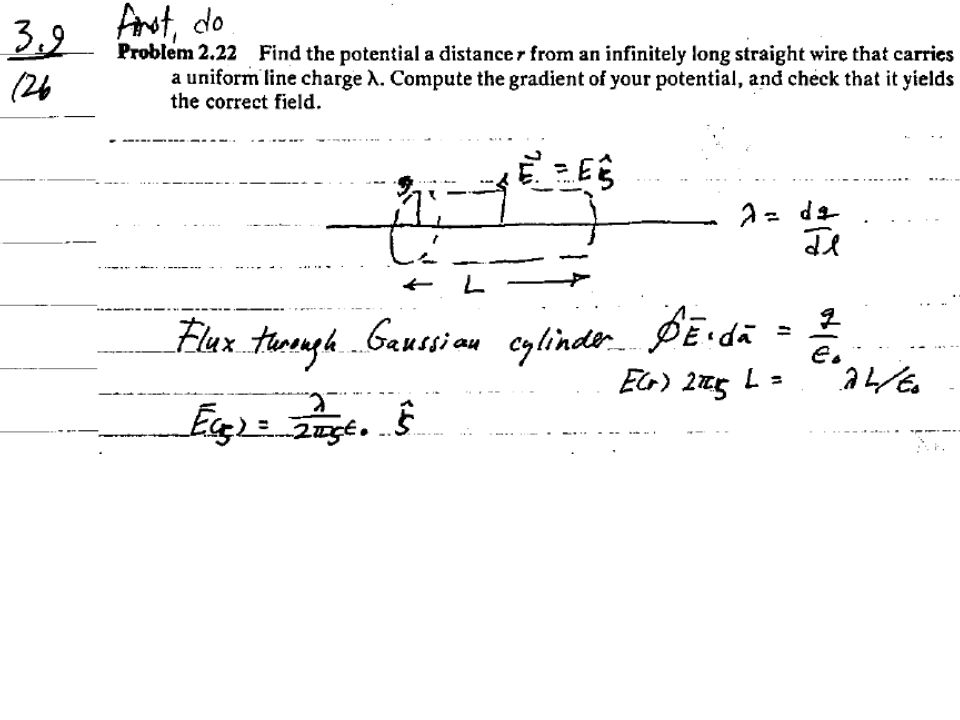 3.9 first, do
126
Problem 2.22 Find the potential a distance r from an infinitely long straight wire that carries
a uniform line charge λ. Compute the gradient of your potential, and check that it yields
the correct field.
E⃗ = E ŝ
s
λ = dq/dl
← L →
Flux through Gaussian cylinder ∮ Ē · dā = q/ε₀
E(r) 2πs L = λL/ε₀
Ē(s) = λ/2πsε₀ ŝ